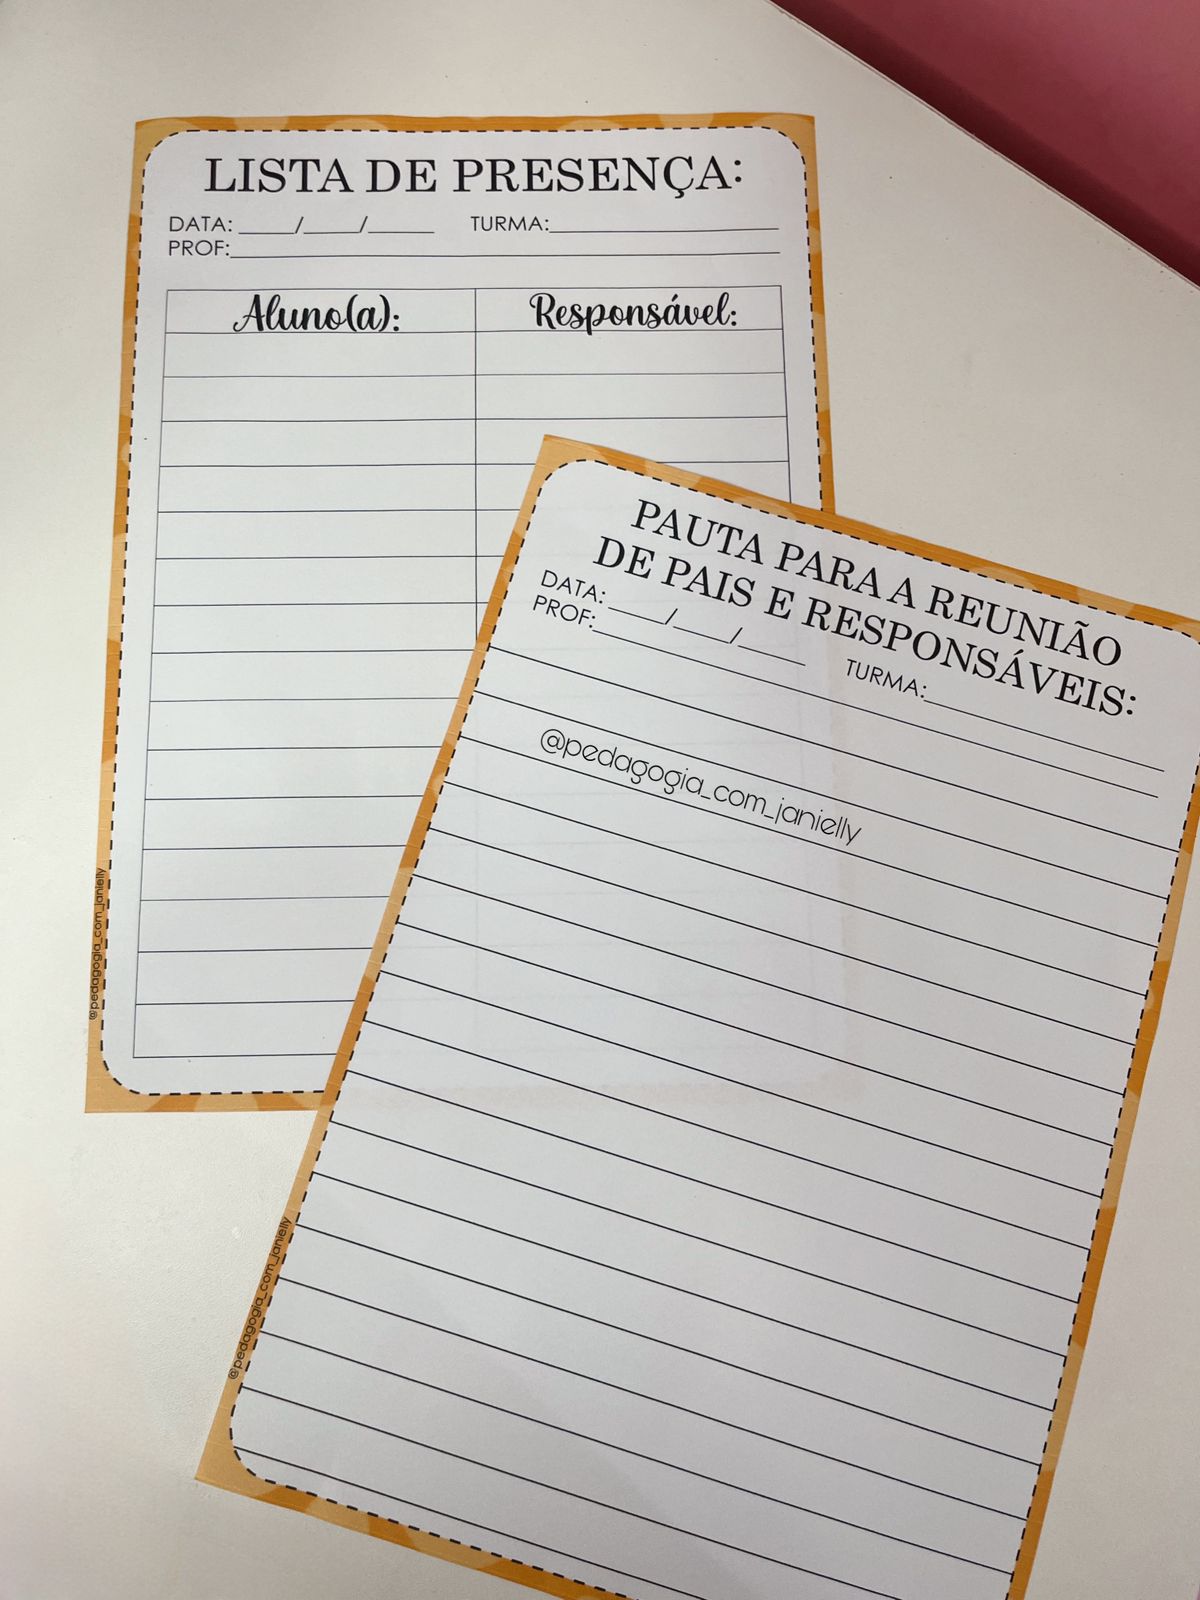 LISTA DE PRESENÇA:
DATA: ____/____/____ TURMA:____________
PROF:____________
Aluno(a): Responsável:
@pedagogia_com_janielly
PAUTA PARA A REUNIÃO
DE PAIS E RESPONSÁVEIS:
DATA: ____/____/____ TURMA:____________
PROF:____________
@pedagogia_com_janielly
@pedagogia_com_janielly